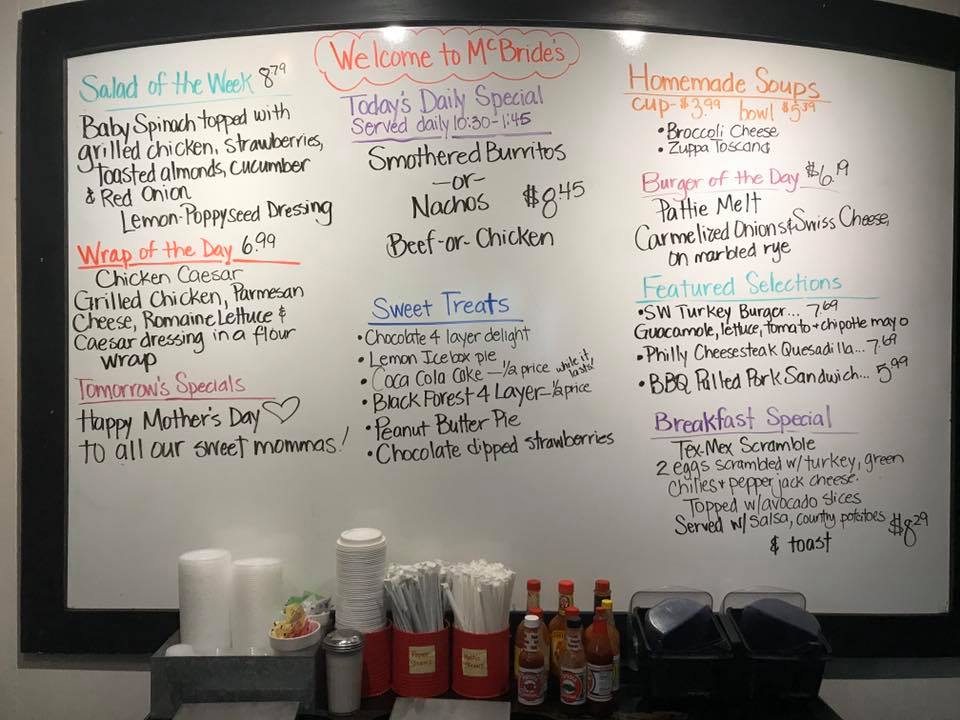 Welcome to McBride's
Salad of the Week 8.79
Baby Spinach topped with
grilled chicken, strawberries,
toasted almonds, cucumber
& Red Onion
Lemon-Poppyseed Dressing
Wrap of the Day 6.99
Chicken Caesar
Grilled Chicken, Parmesan
Cheese, Romaine Lettuce &
Caesar dressing in a flour
wrap
Tomorrow's Specials
Happy Mother's Day
to all our sweet mommas!
Today's Daily Special
Served daily 10:30-1:45
Smothered Burritos
-or-
Nachos $8.45
Beef-or-Chicken
Sweet Treats
• Chocolate 4 layer delight
• Lemon Icebox pie
• Coca Cola Cake - 1/2 price while it lasts!
• Black Forest 4 Layer - 1/2 price
• Peanut Butter Pie
• Chocolate dipped strawberries
Homemade Soups
cup-$3.99 bowl $5.39
• Broccoli Cheese
• Zuppa Toscana
Burger of the Day $6.19
Pattie Melt
Carmelized Onions & Swiss Cheese,
on marbled rye
Featured Selections
• SW Turkey Burger... 7.69
Guacamole, lettuce, tomato + chipotle mayo
• Philly Cheesesteak Quesadilla... 7.69
• BBQ Pulled Pork Sandwich... 5.99
Breakfast Special
Tex-Mex Scramble
2 eggs scrambled w/ turkey, green
chilies + pepper jack cheese.
Topped w/ avocado slices
Served w/ Salsa, country potatoes $8.29
& toast